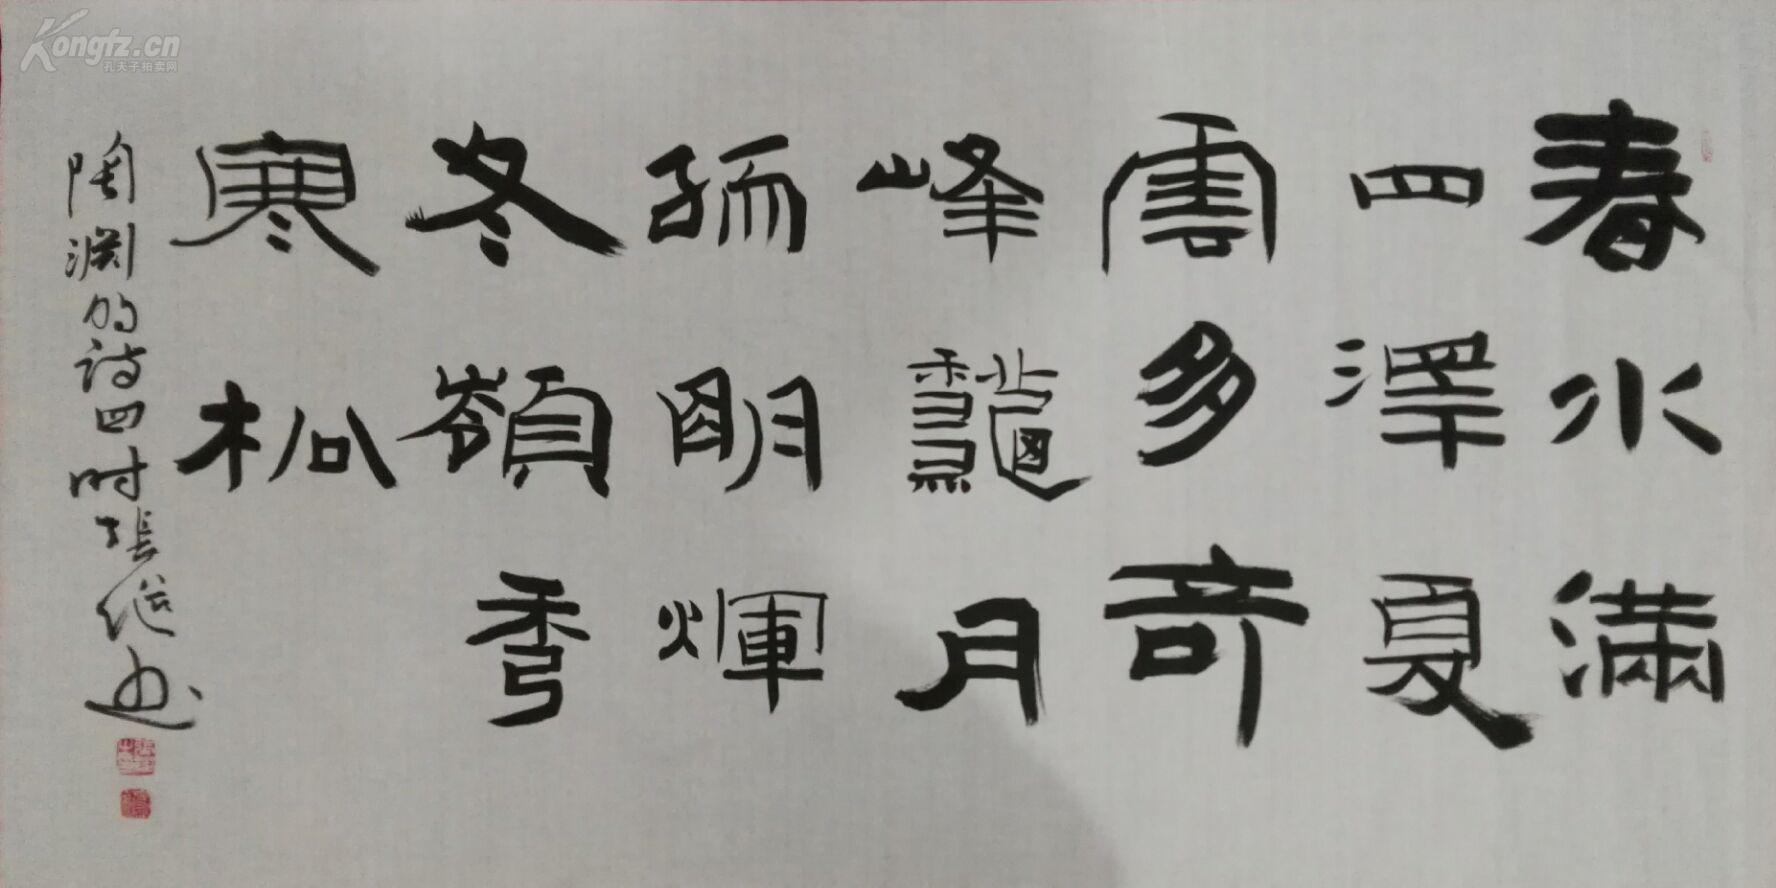 春水滿
四澤夏
雲多奇
峰龝月
明輝
冬嶺秀
寒松
陶渊明诗四时張
Kongfz.cn
孔夫子拍卖网